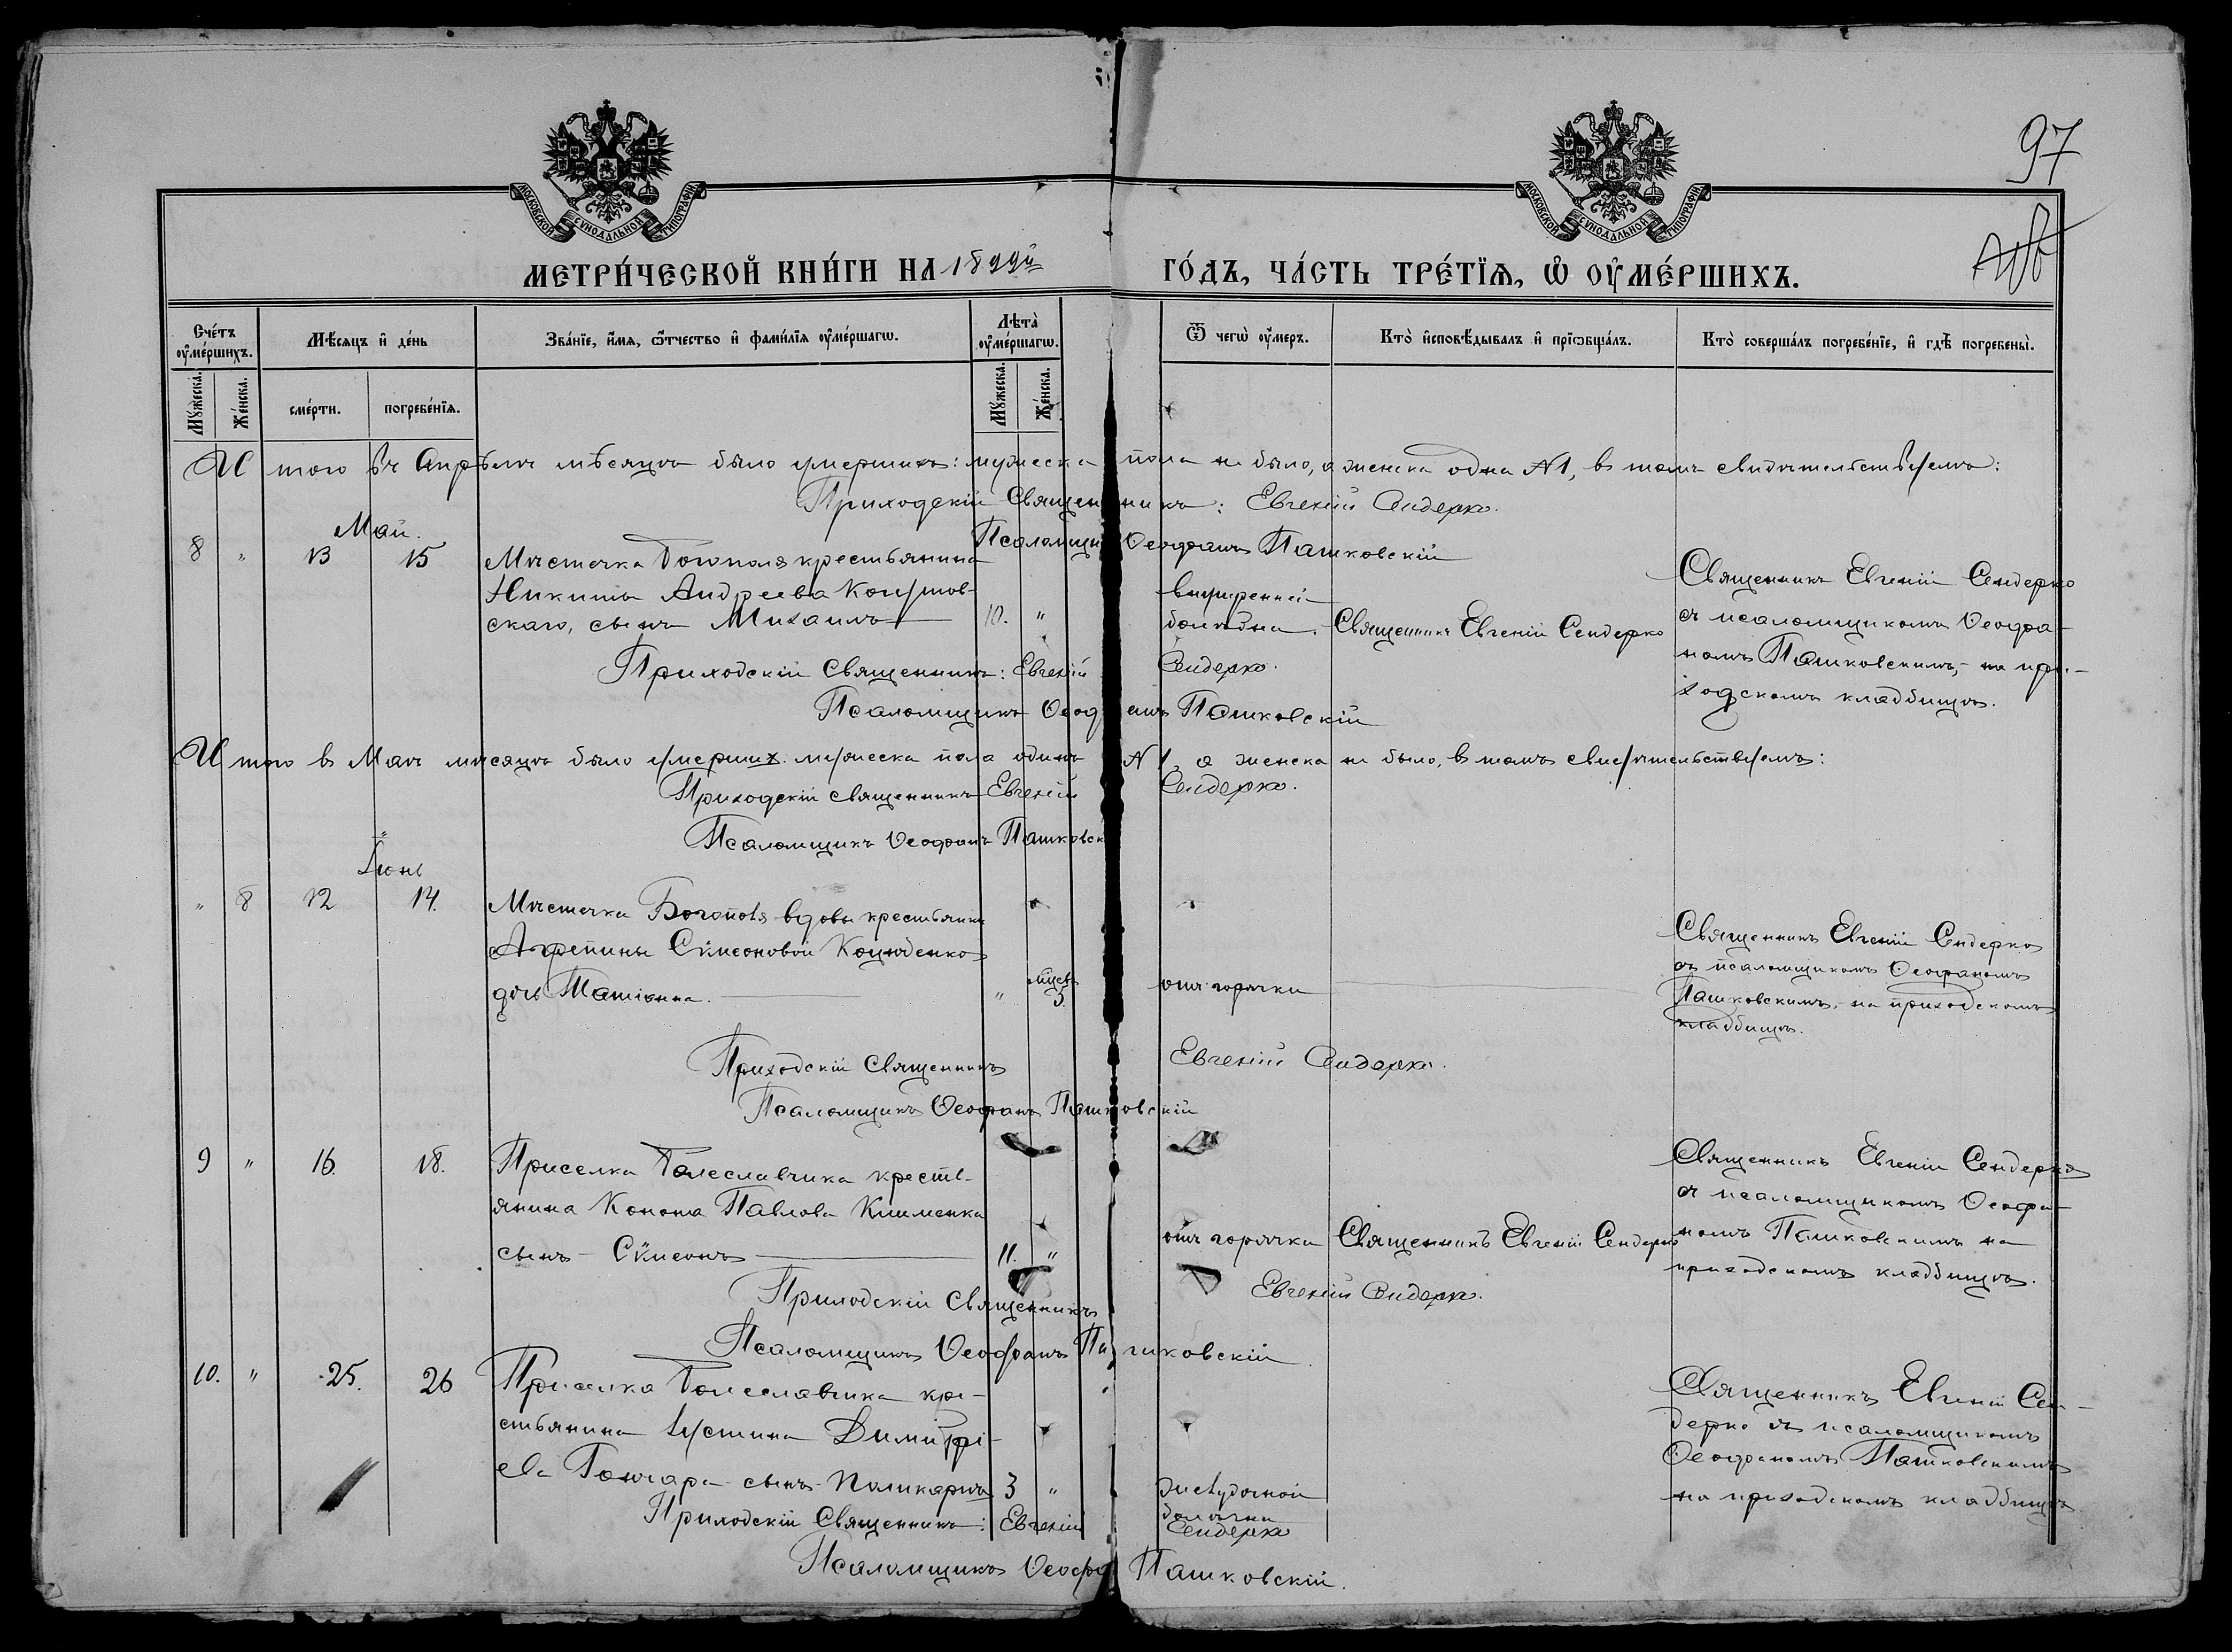 97
МОСКОВСКОЙ СѴНОДАЛЬНОЙ ТИПОГРАФІИ
МОСКОВСКОЙ СѴНОДАЛЬНОЙ ТИПОГРАФІИ
МЕТРИ́ЧЕСКОЙ КНИ́ГИ НА 1899й ГО́ДЪ, ЧА́СТЬ ТРЕ́ТЇѦ, Ѡ҆ ОУ҆МЕ́РШИХЪ.
Сче́тъ оу҆ме́ршихъ.
Мѣ́сяцъ и҆ де́нь
Зва́нїе, и҆́мѧ, ѻ҆́тчество и҆ фами́лїѧ оу҆ме́ршагѡ.
Лѣта̀ оу҆ме́ршагѡ.
Ѿ чегѡ̀ оу҆́меръ.
Кто̀ и҆сповѣ́дывалъ и҆ прїѡбща́лъ.
Кто̀ соверша́лъ погребе́нїе, и҆ гдѣ̀ погребены̀.
Мꙋ́жеска.
Же́нска.
сме́рти.
погребе́нїѧ.
Мꙋ́жеска.
Же́нска.
И того въ Апрѣлѣ мѣсяцѣ было умершихъ: мужеска пола не было, а женска одна №1, в томъ свидѣтельствуемъ:
Приходскій Священникъ: Евгеній Сендерко.
Май.
Псаломщикъ Ѳеофанъ Пашковскій
8 " 13 15 Мѣстечка Богополя крестьянина
Никиты Андреева
скаго, сынъ Михаилъ 10. "
внутренней
болѣзни.
Священникъ Евгеній Сендерко
Священникъ Евгеній Сендерко
съ псаломщикомъ Ѳеофа-
номъ Пашковскимъ, на при-
ходскомъ кладбищѣ.
Приходскій Священникъ: Евгеній Сендерко.
Псаломщикъ Ѳеофанъ Пашковскій
И того в Маѣ мѣсяцѣ было умерших мужеска пола одинъ №1, а женска не было, в томъ свидѣтельствуемъ:
Приходскій священникъ Евгеній Сендерко.
Псаломщикъ Ѳеофанъ Пашковск
Іюнь
" 8 12 14. Мѣстечка Богополя вдовы крестьянки
Агрепины Сѵмеоновой Коцюбенко
дочь Татіанна. " мѣсяц 3
отъ горячки
Священникъ Евгеній Сендерко
съ псаломщикомъ Ѳеофаномъ
Пашковскимъ, на приходскомъ
кладбищѣ.
Приходскій Священникъ Евгеній Сендерко.
Псаломщикъ Ѳеофанъ Пашковскій
9 " 16. 18. Приселка Болеславчика кресть-
янина Конона Павлова Клименка
сынъ - Сѵмеонъ 11. "
отъ горячки Священникъ Евгеній Сендерко
Священникъ Евгеній Сендерко
съ псаломщикомъ Ѳеофа-
номъ Пашковскимъ на
приходскомъ кладбищѣ.
Приходскій Священникъ Евгеній Сендерко.
Псаломщикъ Ѳеофанъ Пашковскій
10. " 25. 26 Приселка Болеславчика кре-
стьянина Іустина Димитрі-
ева Гончара сынъ Поликарпъ 3 "
желудочной
болѣзни
Священникъ Евгеній Сен-
дерко съ псаломщикомъ
Ѳеофаномъ Пашковскимъ
на приходскомъ кладбищѣ
Приходскій Священникъ: Евгеній Сендерко
Псаломщикъ Ѳеофа Пашковскій.